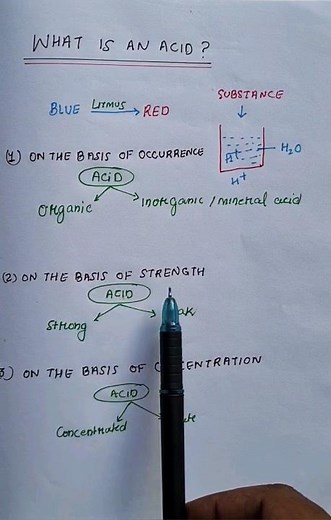 WHAT IS AN ACID?
SUBSTANCE
BLUE LITMUS RED
H+ H2O
H+
(1) ON THE BASIS OF OCCURRENCE
ACID
Organic Inorganic / mineral acid
(2) ON THE BASIS OF STRENGTH
ACID
Strong
ON THE BASIS OF
ACID
Concentrated